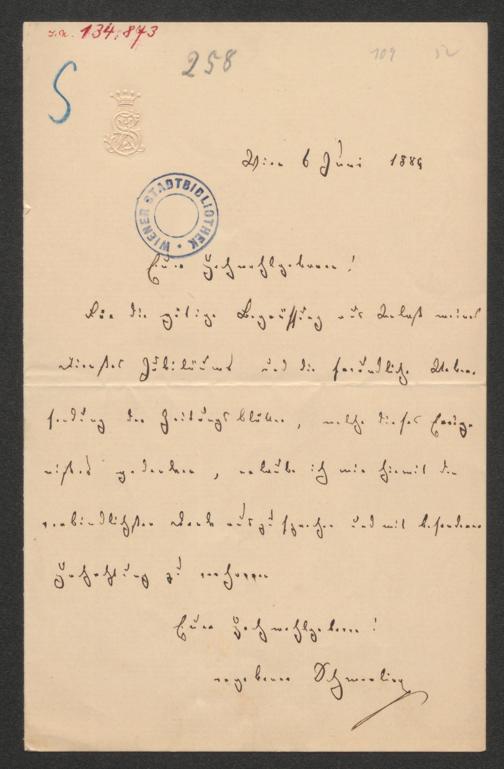 I.N. 134.873
258
109 52
S
Wien 6 Juni 1889
WIENER STADTBIBLIOTHEK
Euer Hochwohlgeboren!
Für die gütige Begrüßung aus Anlaß meines
Dienstes Jubiläums und die freundliche Ueber-
sendung der Zeitungsblätter, welche dieses Ereig-
nißes gedenken, erlaube ich mir hiemit den
verbindlichsten Dank auszusprechen und mit besonderer
Hochachtung zu verharren
Euer Hochwohlgeboren!
ergebener Schmerling